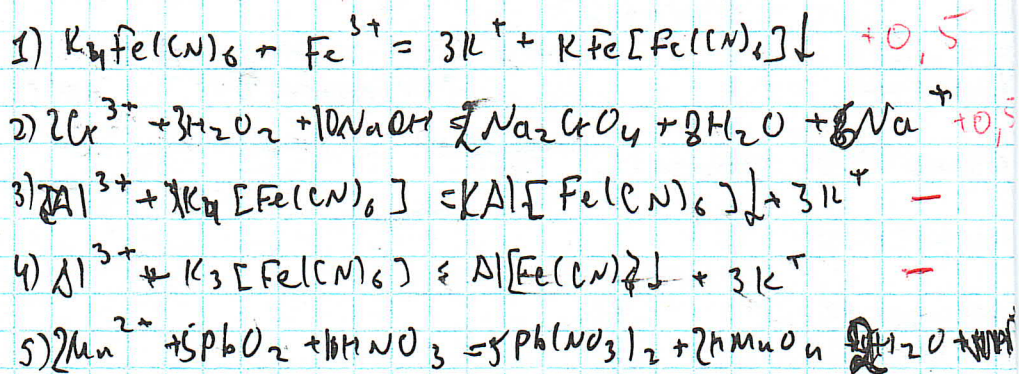 1) K₄Fe(CN)₆ + Fe³⁺ = 3K⁺ + KFe[Fe(CN)₆]↓ +0,5
2) 2Cr³⁺ + 3H₂O₂ + 10NaOH = 2Na₂CrO₄ + 8H₂O + 6Na⁺ +0,5
3) Al³⁺ + K₄[Fe(CN)₆] = KAl[Fe(CN)₆]↓ + 3K⁺ –
4) Al³⁺ + K₃[Fe(CN)₆] = Al[Fe(CN)₆]↓ + 3K⁺ –
5) 2Mn²⁺ + 5PbO₂ + HNO₃ = 5Pb(NO₃)₂ + 2HMnO₄ H₂O +